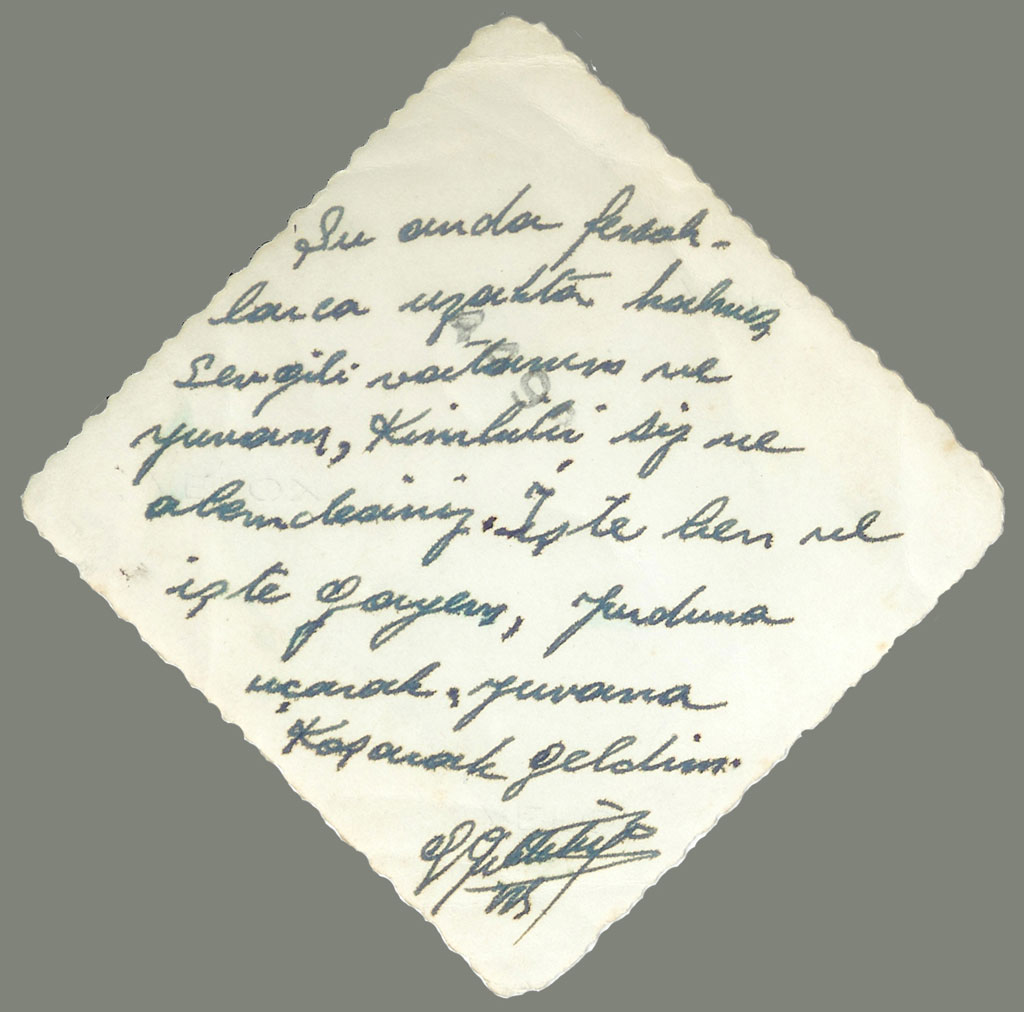 Şu anda fersah-
larca uzakta kalmış
Sevgili vatanım ve
yuvam, siz ve
İşte ben ve
işte Gayem, yurduna
uçarak, yuvana
Koşarak geldim.